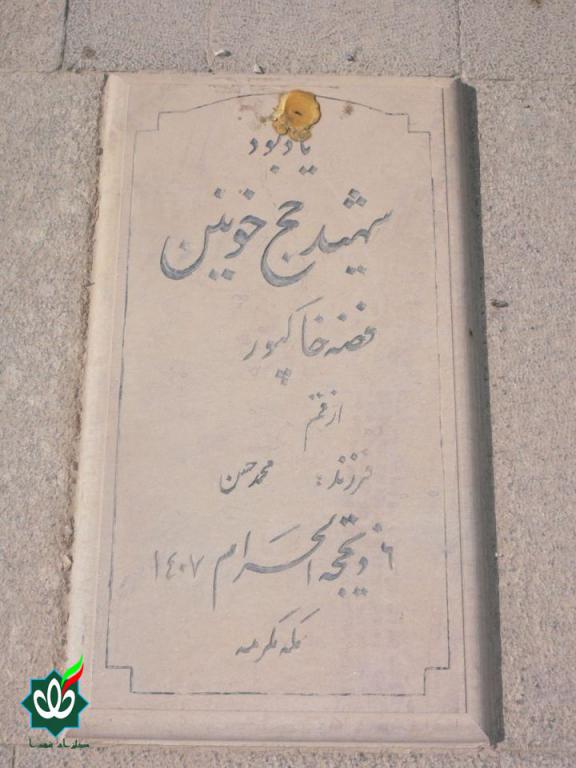 یادبود
شهید حج خونین
فضه خاکپور
از قم
فرزند: محمدحسن
۶ ذیحجه الحرام ۱٤۰۷
مکه مکرمه